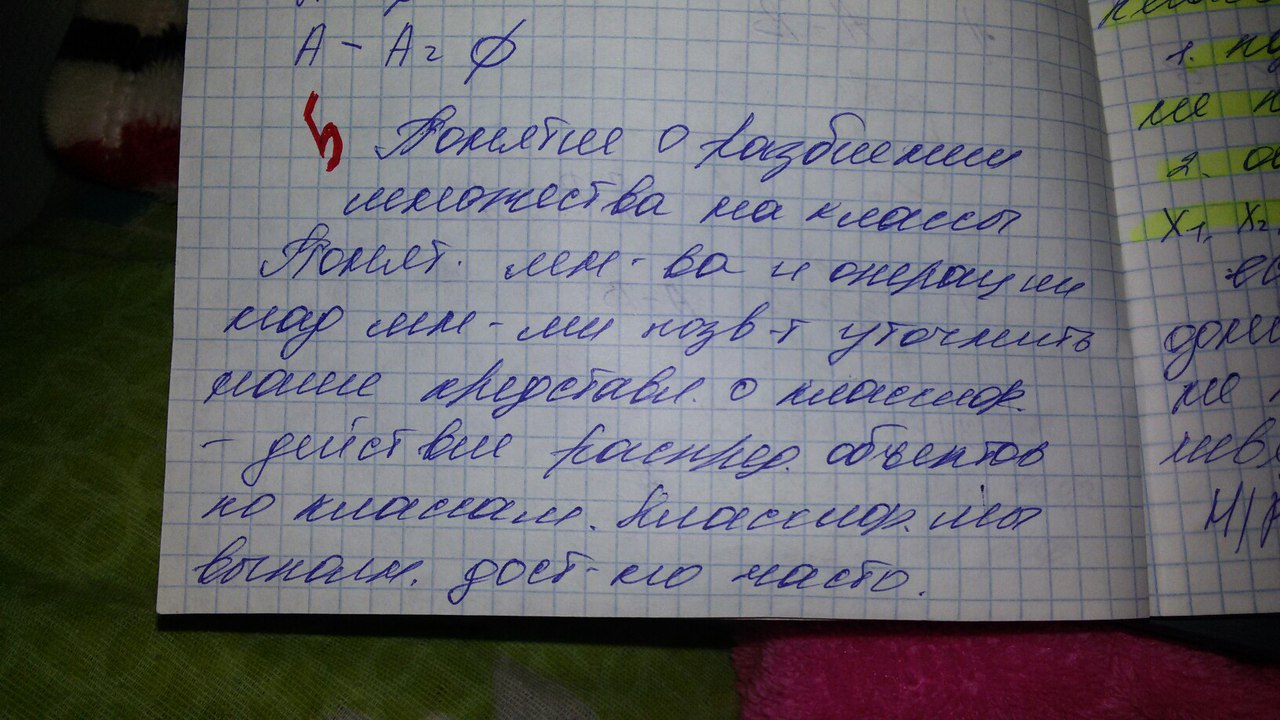 A - A = ∅
5 Понятие о разбиении
множества на классы
Понят. мн-ва и операции
над мн-ми позв-т уточнить
наше представл. о классиф.
- действие распред. объектов
по классам. Классиф. мы
выполн. дост-но часто.
1.
2.
X1, X2,